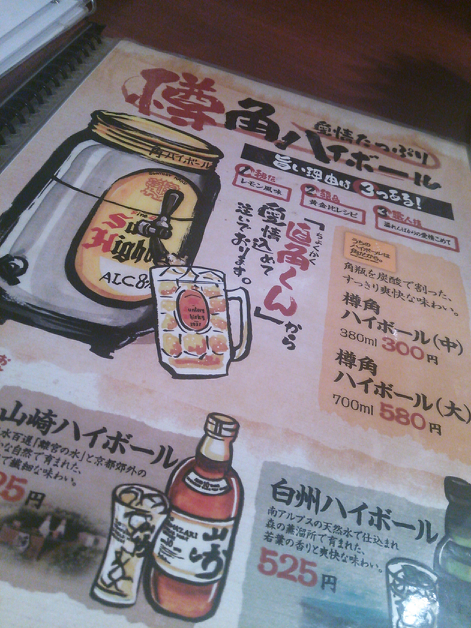 愛情たっぷり
樽角ハイボール
旨い理由は3つある!
レモン風味
黄金比レシピ
溢れんばかりの愛情こめて
「直角くん」から
ちょくかく
愛情込めて
注いでおります。
角ハイボール
ALC8%
うちの
ハイボールは
角だから。
角瓶を炭酸で割った、
すっきり爽快な味わい。
樽角
ハイボール(中)
380ml 300円
樽角
ハイボール(大)
700ml 580円
山崎ハイボール
水百選「離宮の水」と京都郊外の
な自然で育まれた、
で繊細な味わい。
25円
山崎
白州ハイボール
南アルプスの天然水で仕込まれ
森の蒸溜所で育まれた、
若葉の香りと爽快な味わい。
525円